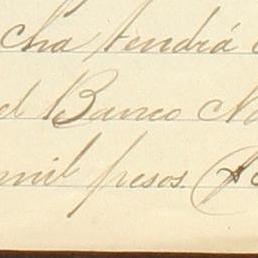 cha tendrá
el Banco N
mil pesos. (